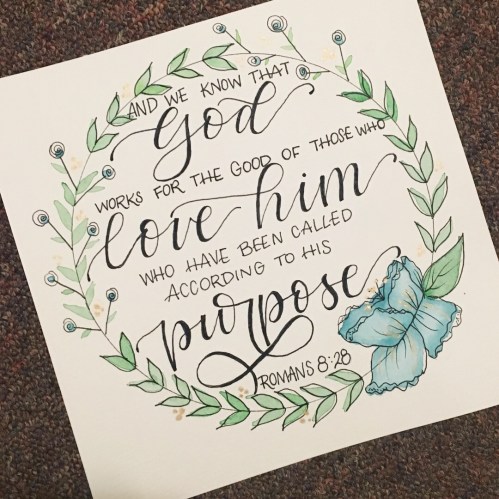 AND WE KNOW THAT
God
WORKS FOR THE GOOD OF THOSE WHO
love him
WHO HAVE BEEN CALLED
ACCORDING TO HIS
purpose
ROMANS 8:28